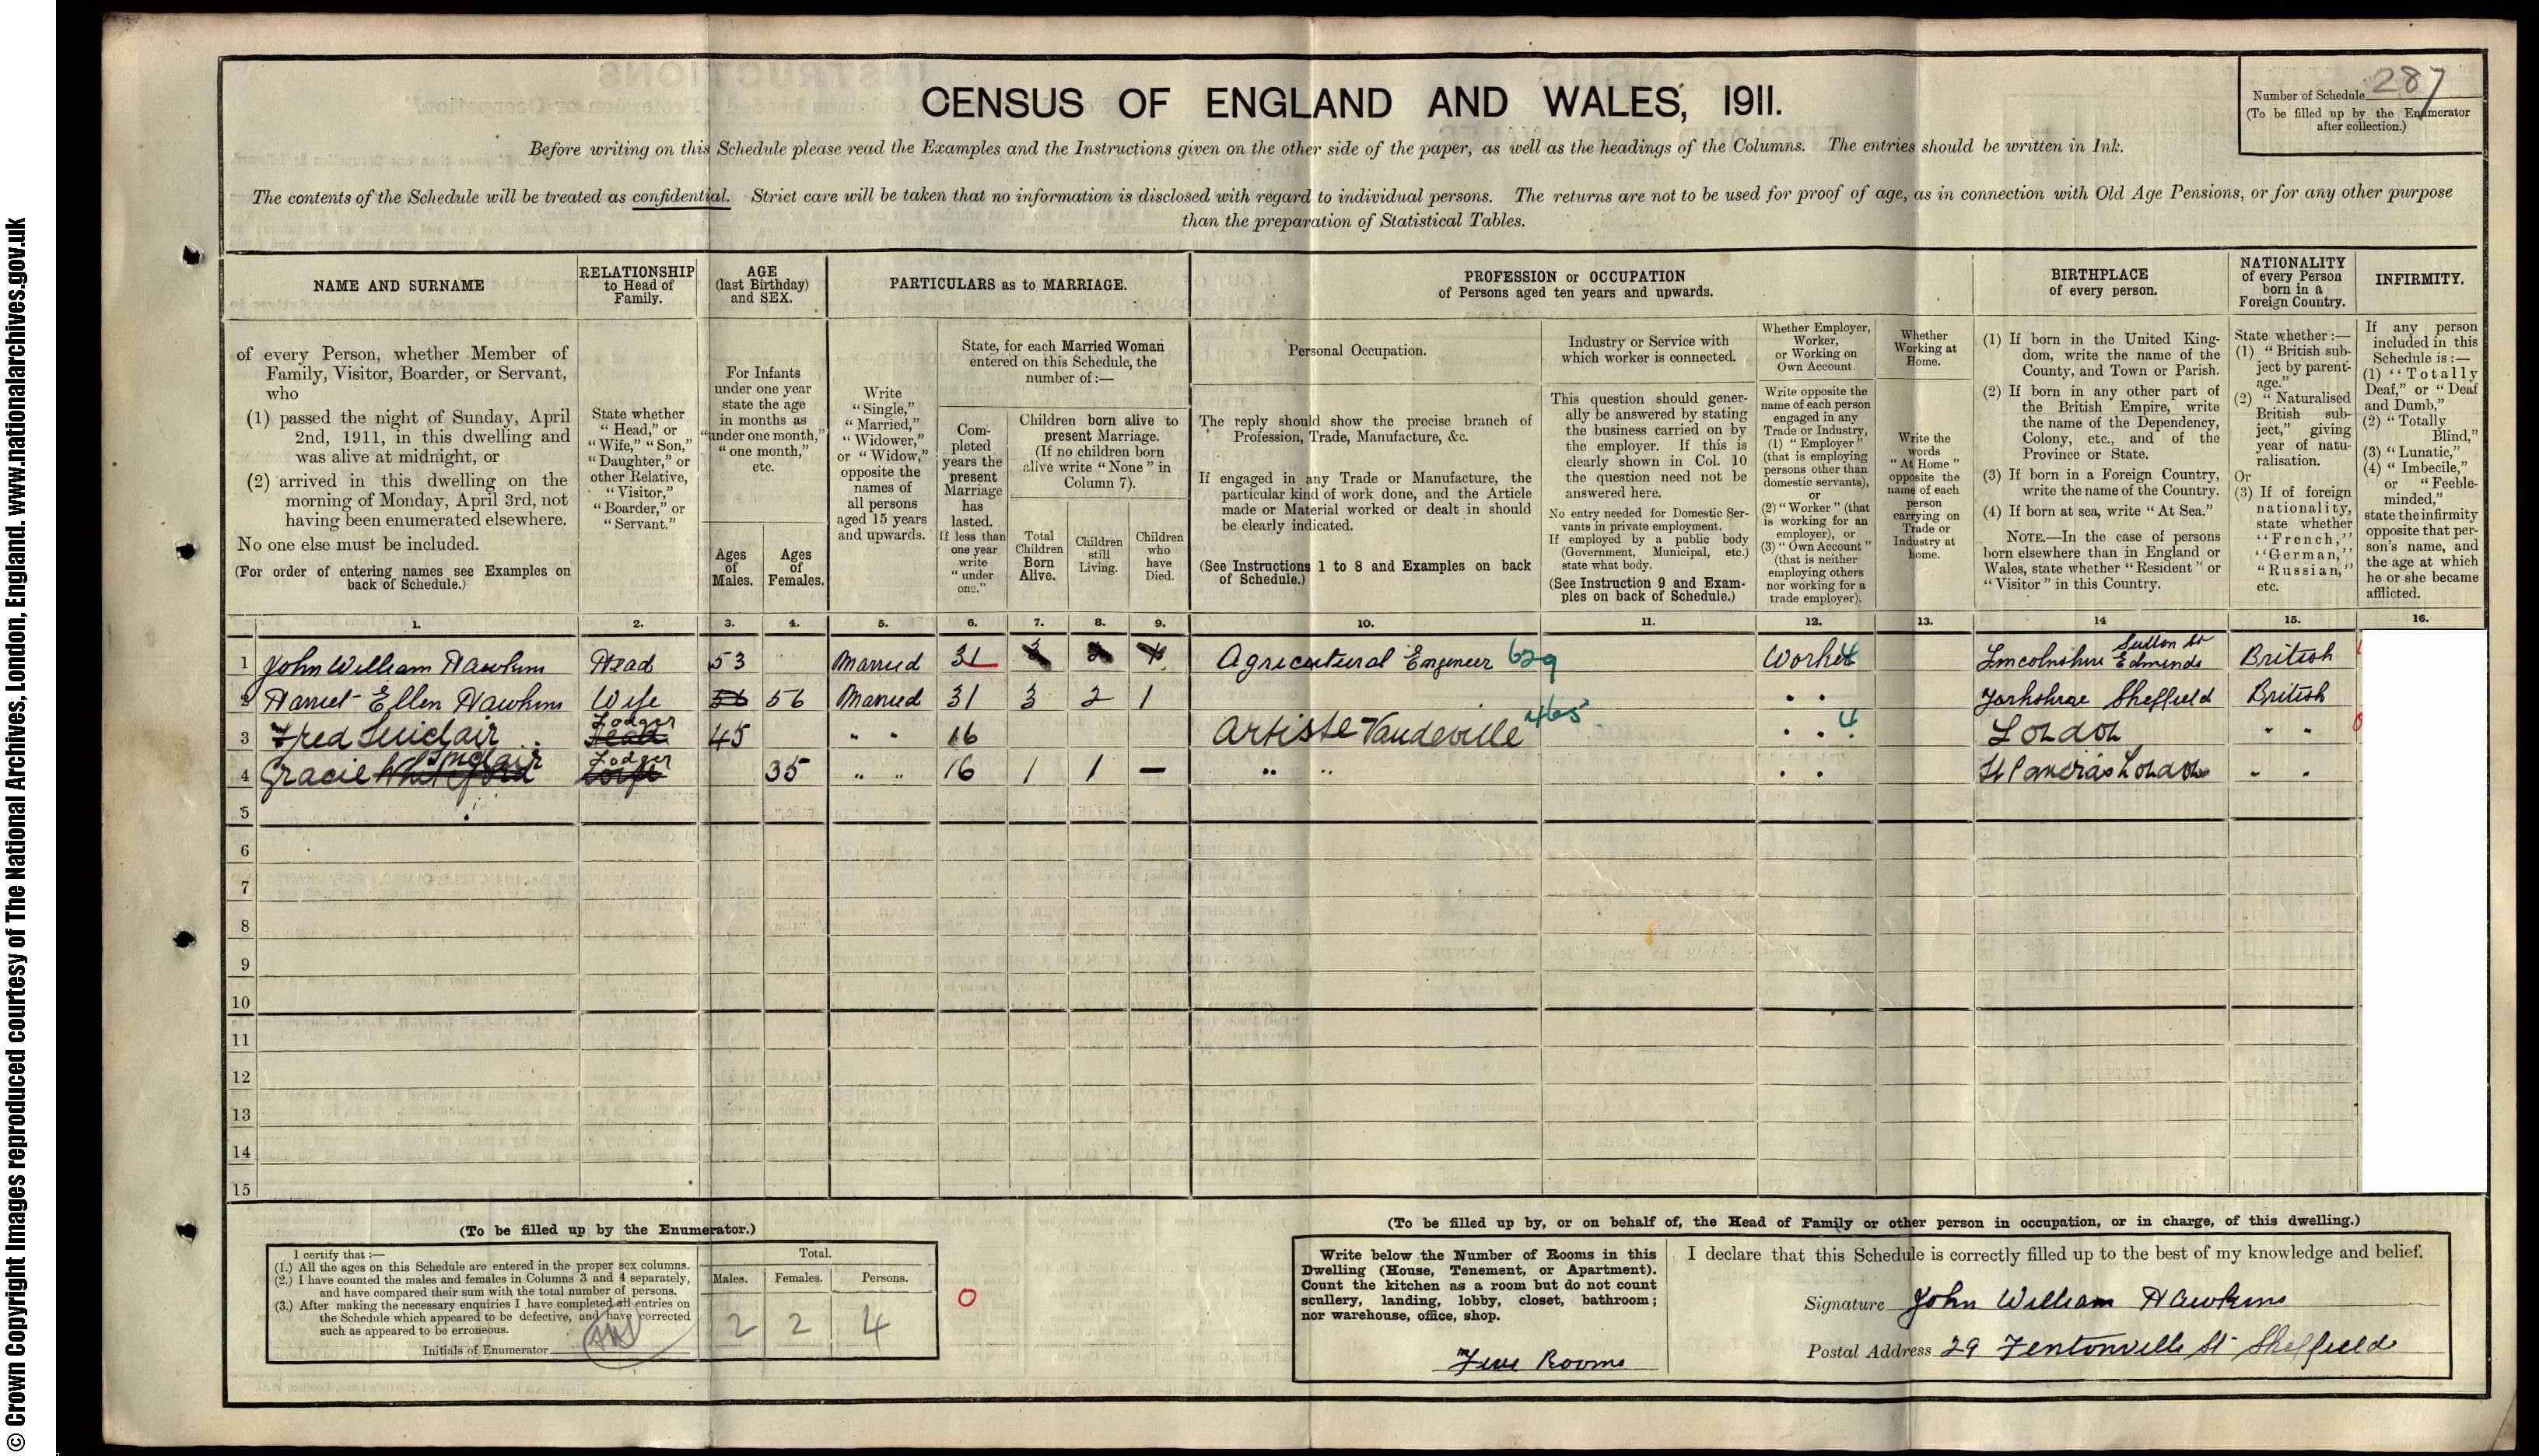 © Crown Copyright Images reproduced courtesy of The National Archives, London, England. www.nationalarchives.gov.uk
CENSUS OF ENGLAND AND WALES, 1911.
Number of Schedule 287
(To be filled up by the Enumerator
after collection.)
Before writing on this Schedule please read the Examples and the Instructions given on the other side of the paper, as well as the headings of the Columns. The entries should be written in Ink.
The contents of the Schedule will be treated as confidential. Strict care will be taken that no information is disclosed with regard to individual persons. The returns are not to be used for proof of age, as in connection with Old Age Pensions, or for any other purpose
than the preparation of Statistical Tables.
NAME AND SURNAME
of every Person, whether Member of
Family, Visitor, Boarder, or Servant,
who
(1) passed the night of Sunday, April
2nd, 1911, in this dwelling and
was alive at midnight, or
(2) arrived in this dwelling on the
morning of Monday, April 3rd, not
having been enumerated elsewhere.
No one else must be included.
(For order of entering names see Examples on
back of Schedule.)
RELATIONSHIP
to Head of
Family.
State whether
"Head," or
"Wife," "Son,"
"Daughter," or
other Relative,
"Visitor,"
"Boarder," or
"Servant."
AGE
(last Birthday)
and SEX.
For Infants
under one year
state the age
in months as
"under one month,"
"one month,"
etc.
Ages
of
Males.
Ages
of
Females.
PARTICULARS as to MARRIAGE.
Write
"Single,"
"Married,"
"Widower,"
or "Widow,"
opposite the
names of
all persons
aged 15 years
and upwards.
State, for each Married Woman
entered on this Schedule, the
number of:—
Com-
pleted
years the
present
Marriage
has
lasted.
If less than
one year
write
"under
one."
Children born alive to
present Marriage.
(If no children born
alive write "None" in
Column 7).
Total
Children
Born
Alive.
Children
still
Living.
Children
who
have
Died.
PROFESSION or OCCUPATION
of Persons aged ten years and upwards.
Personal Occupation.
The reply should show the precise branch of
Profession, Trade, Manufacture, &c.
If engaged in any Trade or Manufacture, the
particular kind of work done, and the Article
made or Material worked or dealt in should
be clearly indicated.
(See Instructions 1 to 8 and Examples on back
of Schedule.)
Industry or Service with
which worker is connected.
This question should gener-
ally be answered by stating
the business carried on by
the employer. If this is
clearly shown in Col. 10
the question need not be
answered here.
No entry needed for Domestic Ser-
vants in private employment.
If employed by a public body
(Government, Municipal, etc.)
state what body.
(See Instruction 9 and Exam-
ples on back of Schedule.)
Whether Employer,
Worker,
or Working on
Own Account.
Write opposite the
name of each person
engaged in any
Trade or Industry,
(1) "Employer"
(that is employing
persons other than
domestic servants),
or
(2) "Worker" (that
is working for an
employer), or
(3) "Own Account"
(that is neither
employing others
nor working for a
trade employer).
Whether
Working at
Home.
Write the
words
"At Home"
opposite the
name of each
person
carrying on
Trade or
Industry at
home.
BIRTHPLACE
of every person.
(1) If born in the United King-
dom, write the name of the
County, and Town or Parish.
(2) If born in any other part of
the British Empire, write
the name of the Dependency,
Colony, etc., and of the
Province or State.
(3) If born in a Foreign Country,
write the name of the Country.
(4) If born at sea, write "At Sea."
NOTE.—In the case of persons
born elsewhere than in England or
Wales, state whether "Resident" or
"Visitor" in this Country.
NATIONALITY
of every Person
born in a
Foreign Country.
State whether:—
(1) "British sub-
ject by parent-
age."
(2) "Naturalised
British sub-
ject," giving
year of natu-
ralisation.
Or
(3) If of foreign
nationality,
state whether
"French,"
"German,"
"Russian,"
etc.
INFIRMITY.
If any person
included in this
Schedule is:—
(1) "Totally
Deaf," or "Deaf
and Dumb,"
(2) "Totally
Blind,"
(3) "Lunatic,"
(4) "Imbecile,"
or "Feeble-
minded,"
state the infirmity
opposite that per-
son's name, and
the age at which
he or she became
afflicted.
1. 2. 3. 4. 5. 6. 7. 8. 9. 10. 11. 12. 13. 14 15. 16.
1 John William Hawkins Head 53 Married 31 Agricutural Engineer 629 Worker Lincolnshire Sutton St Edmunds British
2 Harriet Ellen Hawkins Wife 56 56 Married 31 3 2 1 " " Yorkshire Sheffield British
3 Fred Sinclair Lodger Head 45 " " 16 Artiste Vaudeville 465 " " 4 London " "
4 Gracie Sinclair Lodger Wife 35 " " 16 1 1 — " " " " St Pancras London " "
5
6
7
8
9
10
11
12
13
14
15
(To be filled up by the Enumerator.)
I certify that:—
(1.) All the ages on this Schedule are entered in the proper sex columns.
(2.) I have counted the males and females in Columns 3 and 4 separately,
and have compared their sum with the total number of persons.
(3.) After making the necessary enquiries I have completed all entries on
the Schedule which appeared to be defective, and have corrected
such as appeared to be erroneous.
Initials of Enumerator
Total.
Males. Females. Persons.
2 2 4
0
(To be filled up by, or on behalf of, the Head of Family or other person in occupation, or in charge, of this dwelling.)
Write below the Number of Rooms in this
Dwelling (House, Tenement, or Apartment).
Count the kitchen as a room but do not count
scullery, landing, lobby, closet, bathroom;
nor warehouse, office, shop.
Five Rooms
I declare that this Schedule is correctly filled up to the best of my knowledge and belief.
Signature John William Hawkins
Postal Address 29 Fentonville St Sheffield